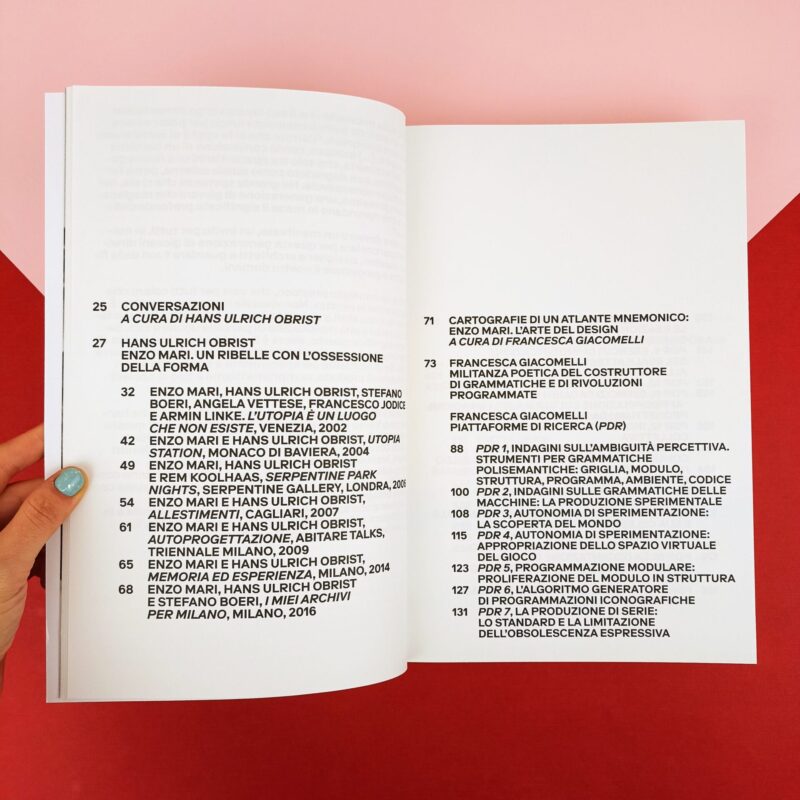 25 CONVERSAZIONI
A CURA DI HANS ULRICH OBRIST
27 HANS ULRICH OBRIST
ENZO MARI. UN RIBELLE CON L'OSSESSIONE
DELLA FORMA
32 ENZO MARI, HANS ULRICH OBRIST, STEFANO
BOERI, ANGELA VETTESE, FRANCESCO JODICE
E ARMIN LINKE. L'UTOPIA È UN LUOGO
CHE NON ESISTE, VENEZIA, 2002
42 ENZO MARI E HANS ULRICH OBRIST, UTOPIA
STATION, MONACO DI BAVIERA, 2004
49 ENZO MARI, HANS ULRICH OBRIST
E REM KOOLHAAS, SERPENTINE PARK
NIGHTS, SERPENTINE GALLERY, LONDRA, 2006
54 ENZO MARI E HANS ULRICH OBRIST,
ALLESTIMENTI, CAGLIARI, 2007
61 ENZO MARI E HANS ULRICH OBRIST,
AUTOPROGETTAZIONE, ABITARE TALKS,
TRIENNALE MILANO, 2009
65 ENZO MARI E HANS ULRICH OBRIST,
MEMORIA ED ESPERIENZA, MILANO, 2014
68 ENZO MARI, HANS ULRICH OBRIST
E STEFANO BOERI, I MIEI ARCHIVI
PER MILANO, MILANO, 2016
71 CARTOGRAFIE DI UN ATLANTE MNEMONICO:
ENZO MARI. L'ARTE DEL DESIGN
A CURA DI FRANCESCA GIACOMELLI
73 FRANCESCA GIACOMELLI
MILITANZA POETICA DEL COSTRUTTORE
DI GRAMMATICHE E DI RIVOLUZIONI
PROGRAMMATE
FRANCESCA GIACOMELLI
PIATTAFORME DI RICERCA (PDR)
88 PDR 1, INDAGINI SULL'AMBIGUITÀ PERCETTIVA.
STRUMENTI PER GRAMMATICHE
POLISEMANTICHE: GRIGLIA, MODULO,
STRUTTURA, PROGRAMMA, AMBIENTE, CODICE
100 PDR 2, INDAGINI SULLE GRAMMATICHE DELLE
MACCHINE: LA PRODUZIONE SPERIMENTALE
108 PDR 3, AUTONOMIA DI SPERIMENTAZIONE:
LA SCOPERTA DEL MONDO
115 PDR 4, AUTONOMIA DI SPERIMENTAZIONE:
APPROPRIAZIONE DELLO SPAZIO VIRTUALE
DEL GIOCO
123 PDR 5, PROGRAMMAZIONE MODULARE:
PROLIFERAZIONE DEL MODULO IN STRUTTURA
127 PDR 6, L'ALGORITMO GENERATORE
DI PROGRAMMAZIONI ICONOGRAFICHE
131 PDR 7, LA PRODUZIONE DI SERIE:
LO STANDARD E LA LIMITAZIONE
DELL'OBSOLESCENZA ESPRESSIVA